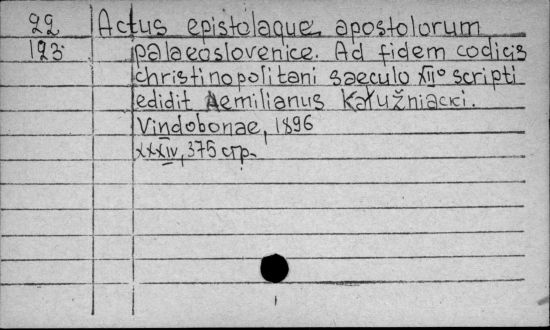 22 Actus epistolaque apostolorum
123 palaeoslovenice. Ad fidem codicis
christinopolitani saeculo XIIº scripti
edidit Aemilianus Kałužniacki.
Vindobonae, 1896
XXXIV, 375 стр.